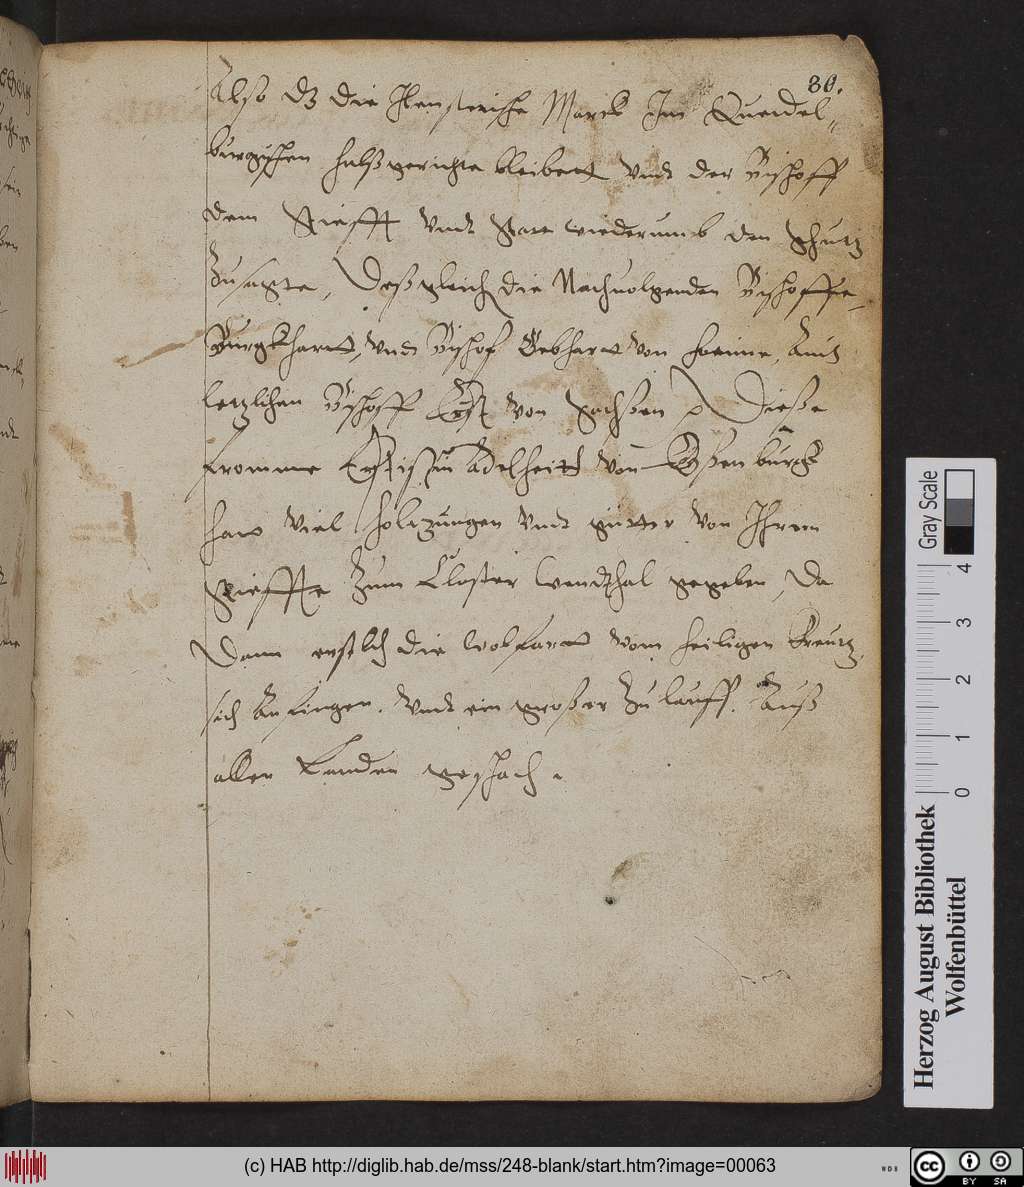 30.
Also dz die Ilensteische Marck Im Quendel-
burgischen halßgerichte bleibett vndt der Bischoff
dem Stiefft vndt Statt wiederumb den Schutz
Zusagte, Deßgleich die Nachuolgenden Bischoffe,
Burgkhartt, vnd Bischof Gebhartt von hoeime, Auch
letzlichen Bischoff Ernst von Sachßen Dieße
fromme Ebtißin Adelheitt von Eißenburgk
hatt viel Holtzungen vndt gütter von Ihrem
Stieffte Zum Closter Wendthal gegeben, Da
Dann erstlich die wolfartt vom heiligen Kreutz,
sich Anfingen. vndt ein großer Zulauff. Auß
allen Landen geschach.
Gray Scale
0 1 2 3 4
Herzog August Bibliothek
Wolfenbüttel
(c) HAB http://diglib.hab.de/mss/248-blank/start.htm?image=00063
WDB
cc
BY SA